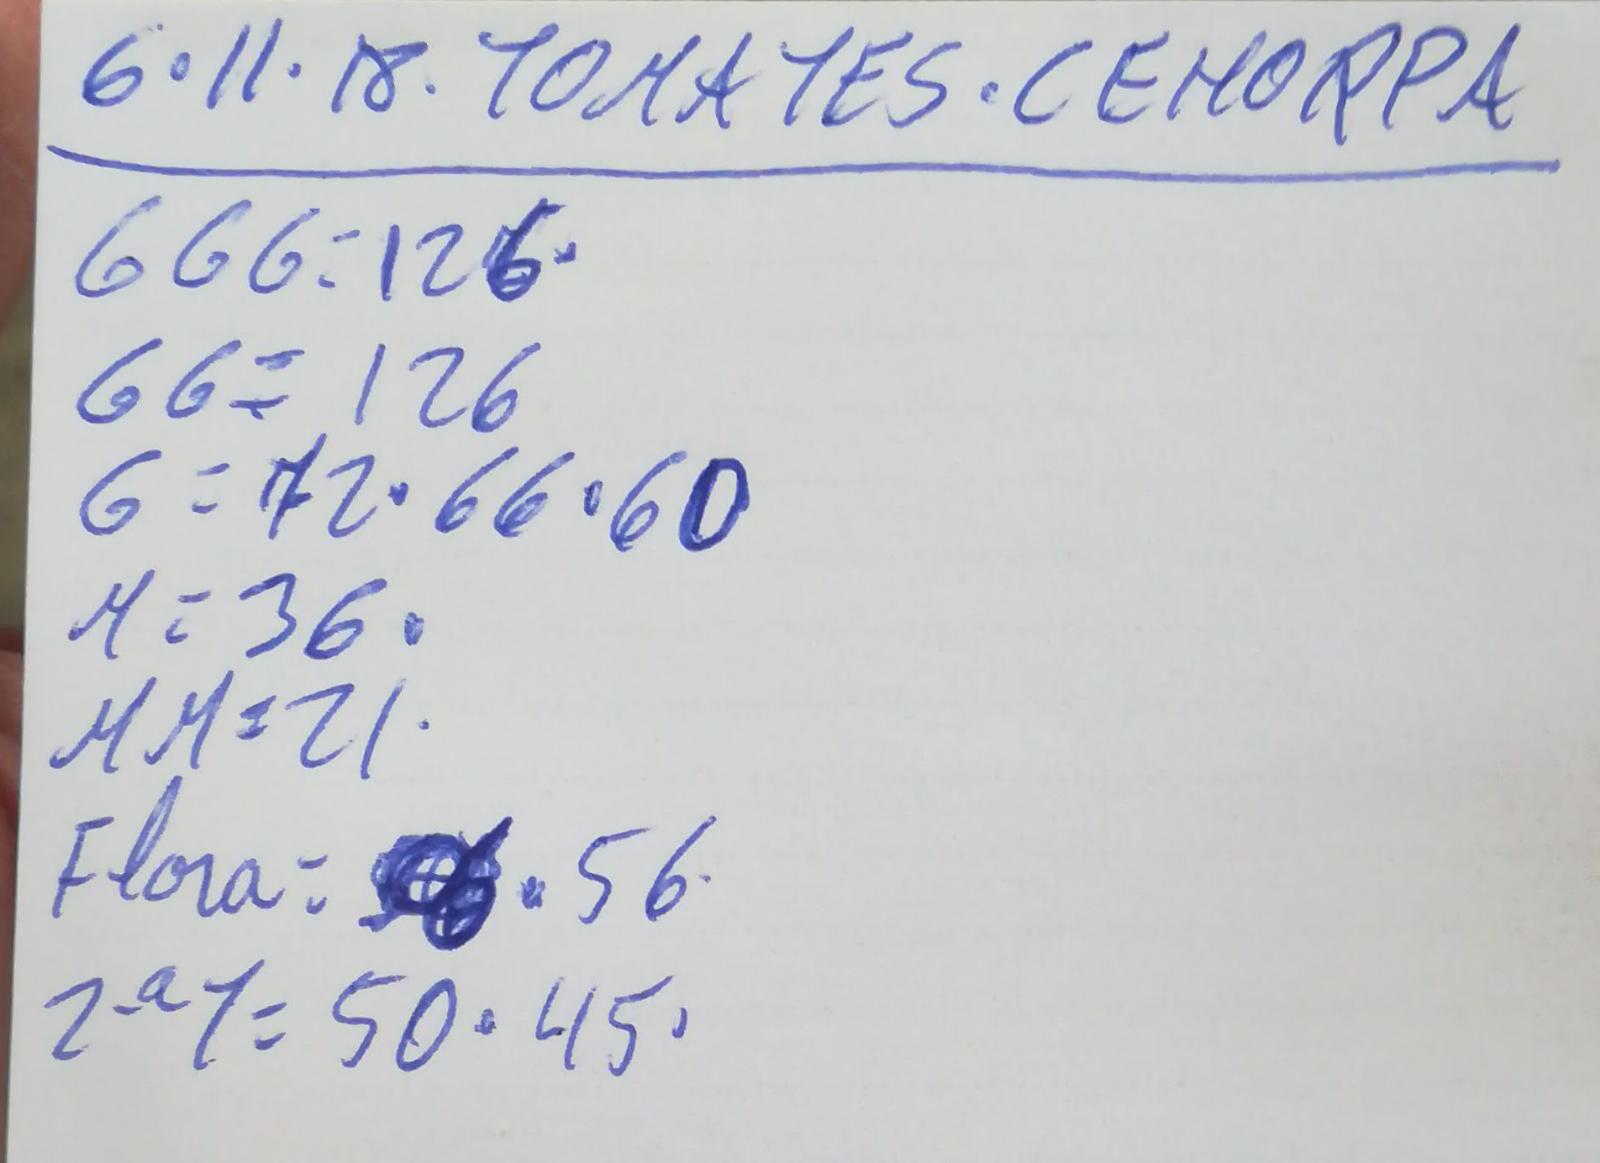 6.11.18. TOMATES. CEHORPA
GGG=126.
GG=126
G=72.66.60
M=36.
MM=21.
Flora= .56.
2ªT=50.45.